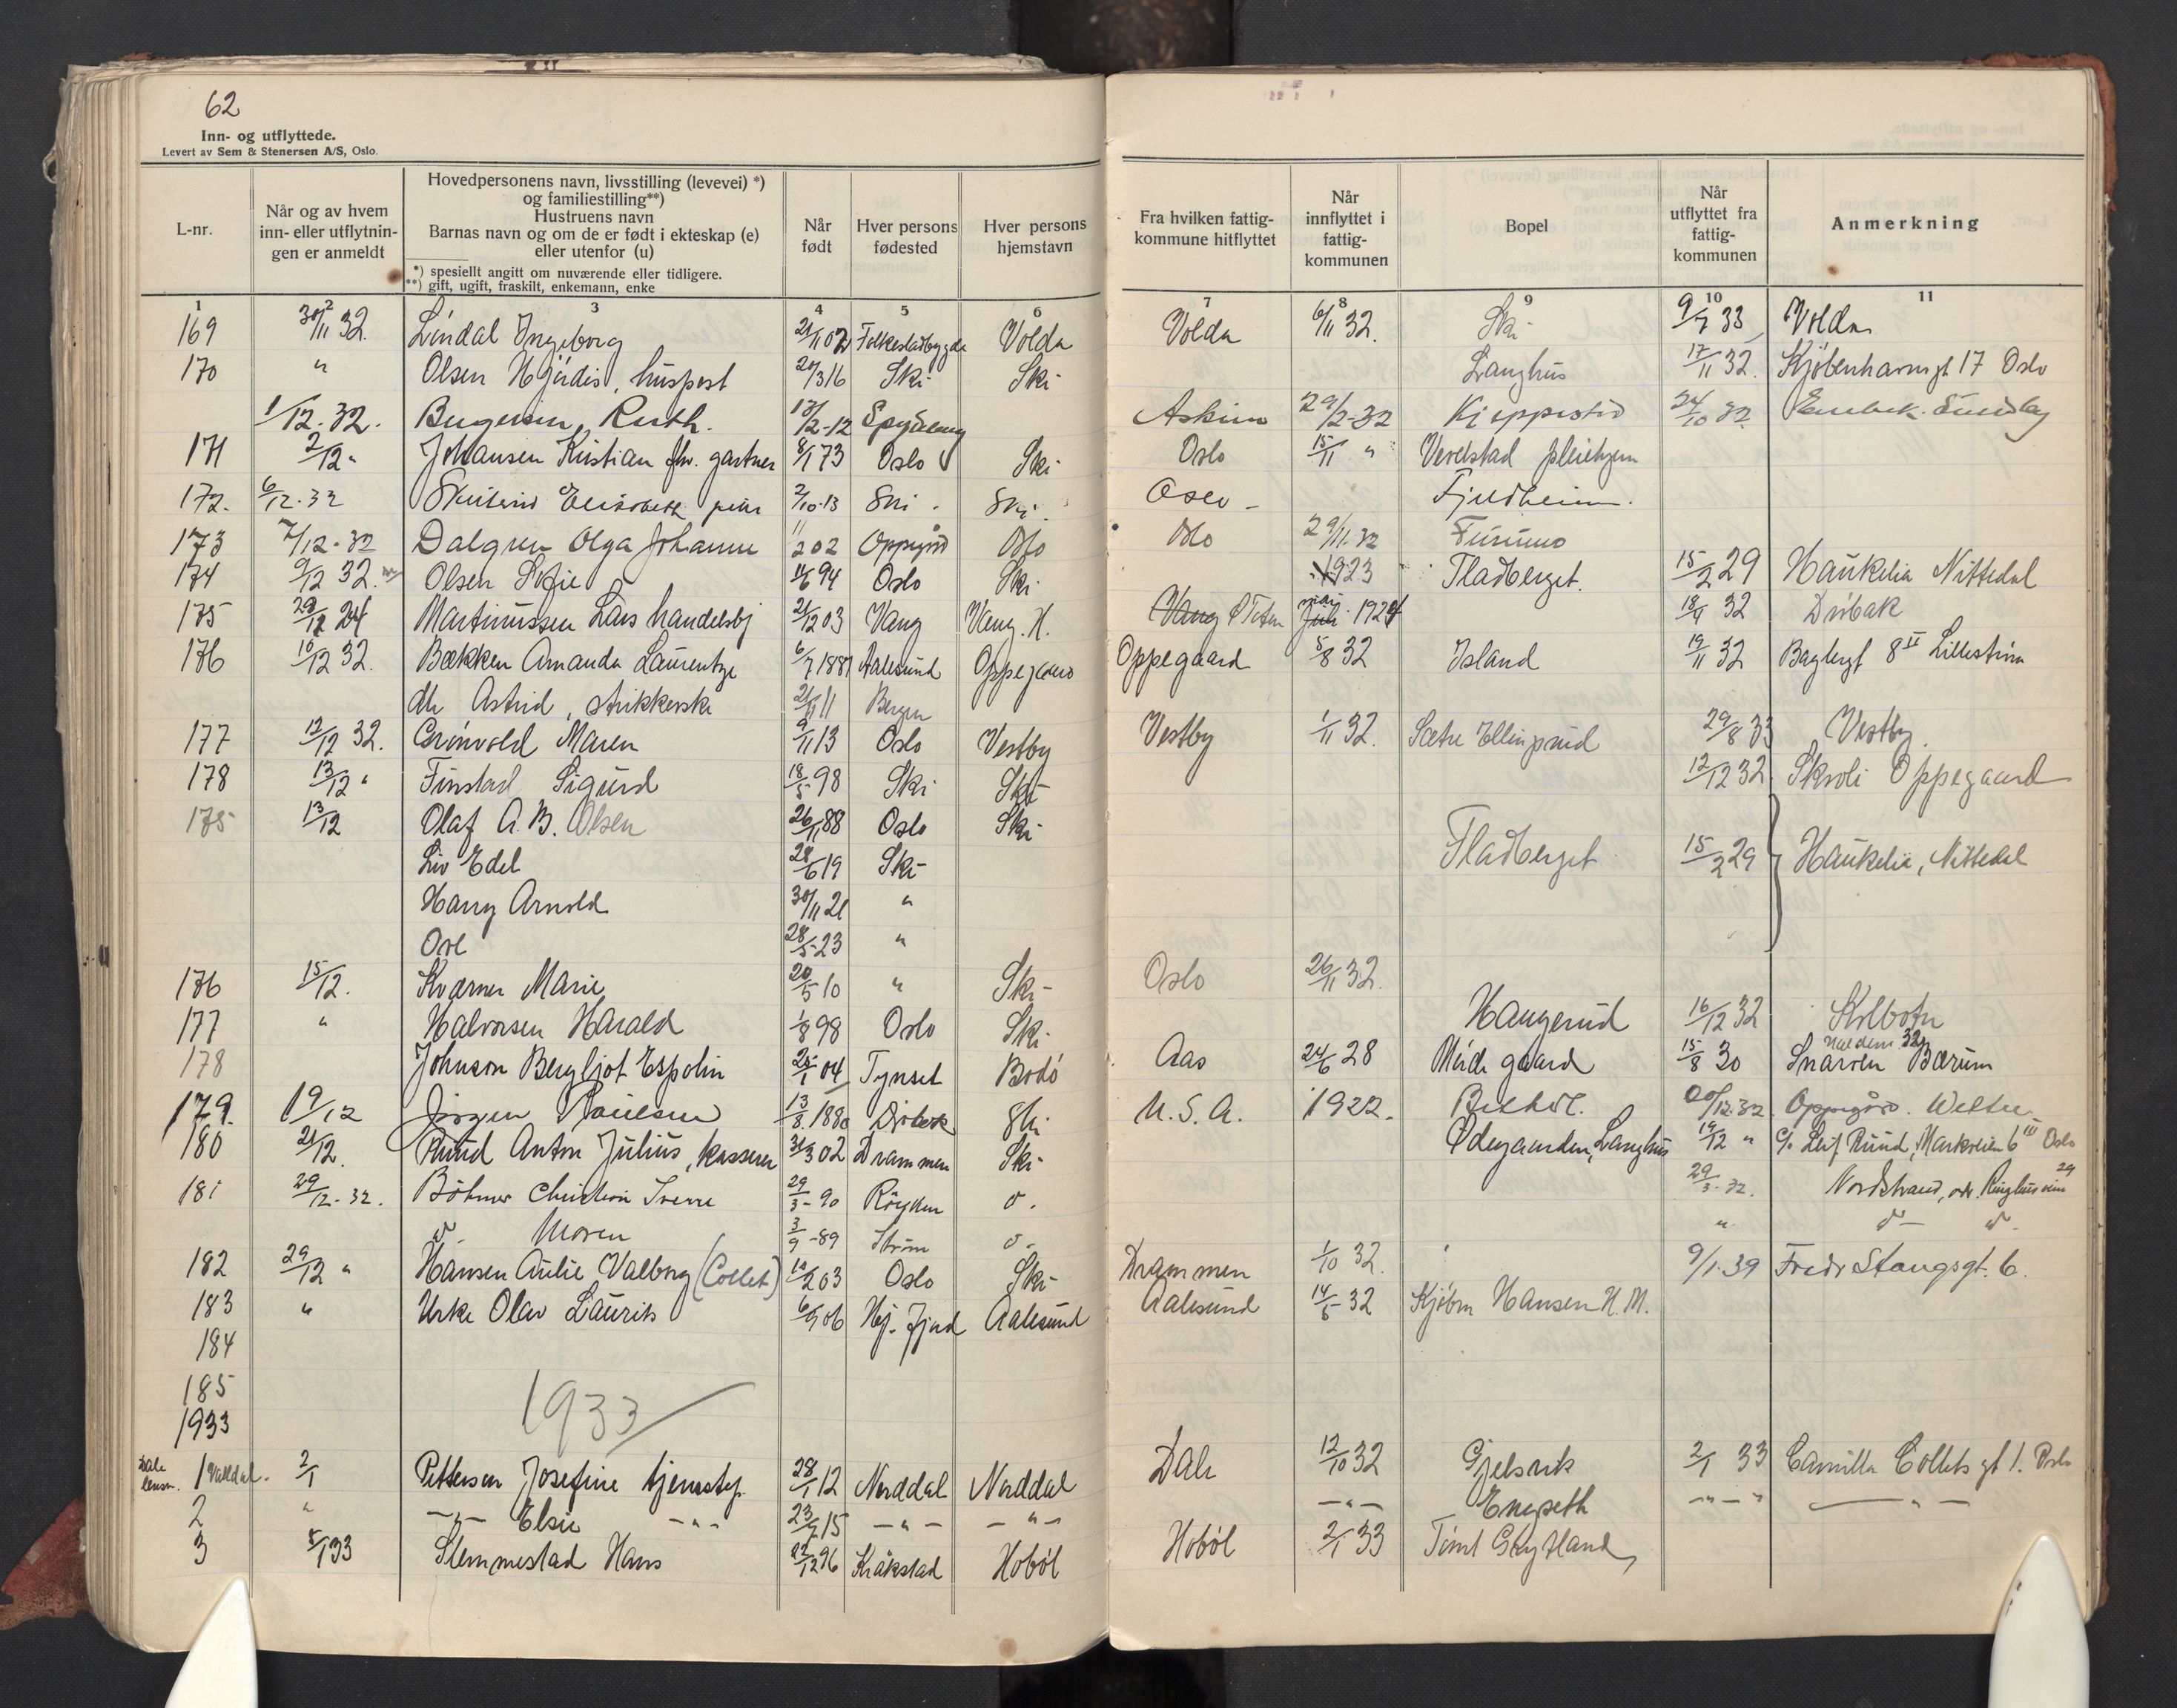 62
Inn- og utflyttede.
Levert av Sem & Stenersen A/S, Oslo.
L-nr.
Når og av hvem inn- eller utflytnin-gen er anmeldt
Hovedpersonens navn, livsstilling (levevei) *) og familiestilling**)
Hustruens navn
Barnas navn og om de er født i ekteskap (e) eller utenfor (u)
*) spesiellt angitt om nuværende eller tidligere.
**) gift, ugift, fraskilt, enkemann, enke
Når født
Hver persons fødested
Hver persons hjemstavn
Fra hvilken fattig-kommune hitflyttet
Når innflyttet i fattig-kommunen
Bopel
Når utflyttet fra fattig-kommunen
Anmerkning
1 2 3 4 5 6 7 8 9 10 11
169 30/11 32. Lindal Ingeborg 21/11 02 Folkestadbygda Volda Volda 6/11 32. Ski 9/7 33 Volda
170 " Olsen Hjördis, huspost 20/3 16 Ski Ski Langhus 17/11 32. Kjöbenhavngt 17 Oslo
1/12. 32. Ruth. 13/2-12 Askim 29/2-32 Kjeppestad 24/10 32
171 2/12 " Johansen Kristian fhv. gartner 8/1 73 Oslo Ski Oslo 15/11 " Verelstad pleiehjem
172. 6/12.32 Elisabeth 2/10.13 Ski Ski. Oslo - Fjeldheim.
173 7/12-32 Dalgren Olga Johanne 11/2 02 Oppegård Oslo Oslo 29/11.32 Furumo
174 9/12 32. Olsen Sofie 11/6 94 Oslo Ski 1923 Fladberget. 15/2 29 Haukelia Nittedal
175 29/12 24 Martinussen Lars handelsbj 21/12 03 Vang Vang. H. Vang Ø Toten mai Juli 1924 18/4 32 Dröbak
176 10/12 32. Bækken Amanda Laurentze 6/7 1881 Aalesund Oppegaard Oppegaard 5/8 32 Island 19/11 32 Baglergt 8 II Lilleström
dtr Astrid, strikkerske 21/11 11 Bergen
177 12/12 32. Grönvold Maren 9/11 13 Oslo Vestby Vestby 1/11 32. Sætre Ellingsrud 29/8 33 Vestby.
178 13/12 " Finstad Sigurd 18/5 98 Ski Ski 12/12 32 Skroli Oppegaard
175 13/12 Olaf A. B. Olsen 26/11 88 Oslo Ski Fladberget 15/2 29 Haukelia, Nittedal
Liv Edel 28/6 19 Ski
Harry Arnold 30/11 21 "
Ove 28/5-23 "
176 15/12. Kværner Marie 20/5 10 " Ski Oslo 26/11 32.
177 " Halvorsen Harald 1/8 98 Oslo Ski Haugerud 16/12 32 Kolbotn
178 Johnson Bergljot Espolin 25/1 04 Tynset Bodö Aas 24/6 28 Midgaard 15/8 30 Snaröen Bærum
179. 19/12 Jörgen Paulsen 13/8.1880 Dröbak Ski U.S.A. 1922. 20/12.32 Oppegård.
180 21/12. Ruud Anton Julius, kasserer 31/3 02 Drammen Ski Ödegaarden, Langhus 19/12 " C/o Leif Ruud, Markveien 6 III Oslo
181 29/12-32. Böhmer Christian Sverre 29/3-90 Röyken 29/3-32. Nordstrand, 29
Maren 3/9-89 Ström "
182 29/12 " Hansen Aulie Valborg (Collet) 10/2 03 Oslo Ski Drammen 1/10 32. 9/1.39 Fredr Stangsgt. 6.
183 " Urke Olav Laurits 6/9 06 Hj. Fjord Aalesund Aalesund 14/5 32 Kjöbm Hansen H. M.
184
185
1933
1933
1 Valldal. 2/1 Pettersen Josefine tjenestep. 28/1 12 Norddal Norddal Dale 12/10 32 Gjelsvik 2/1 33 Camilla Collets gt 1. Oslo
2 " -"- Elsie -"- 23/7 15 -"- -"- -"- Engseth -"- " -"-
3 5/1 33 Slemmestad Hans 22/12 96 Kråkstad Hobøl Hobøl 2/1 33